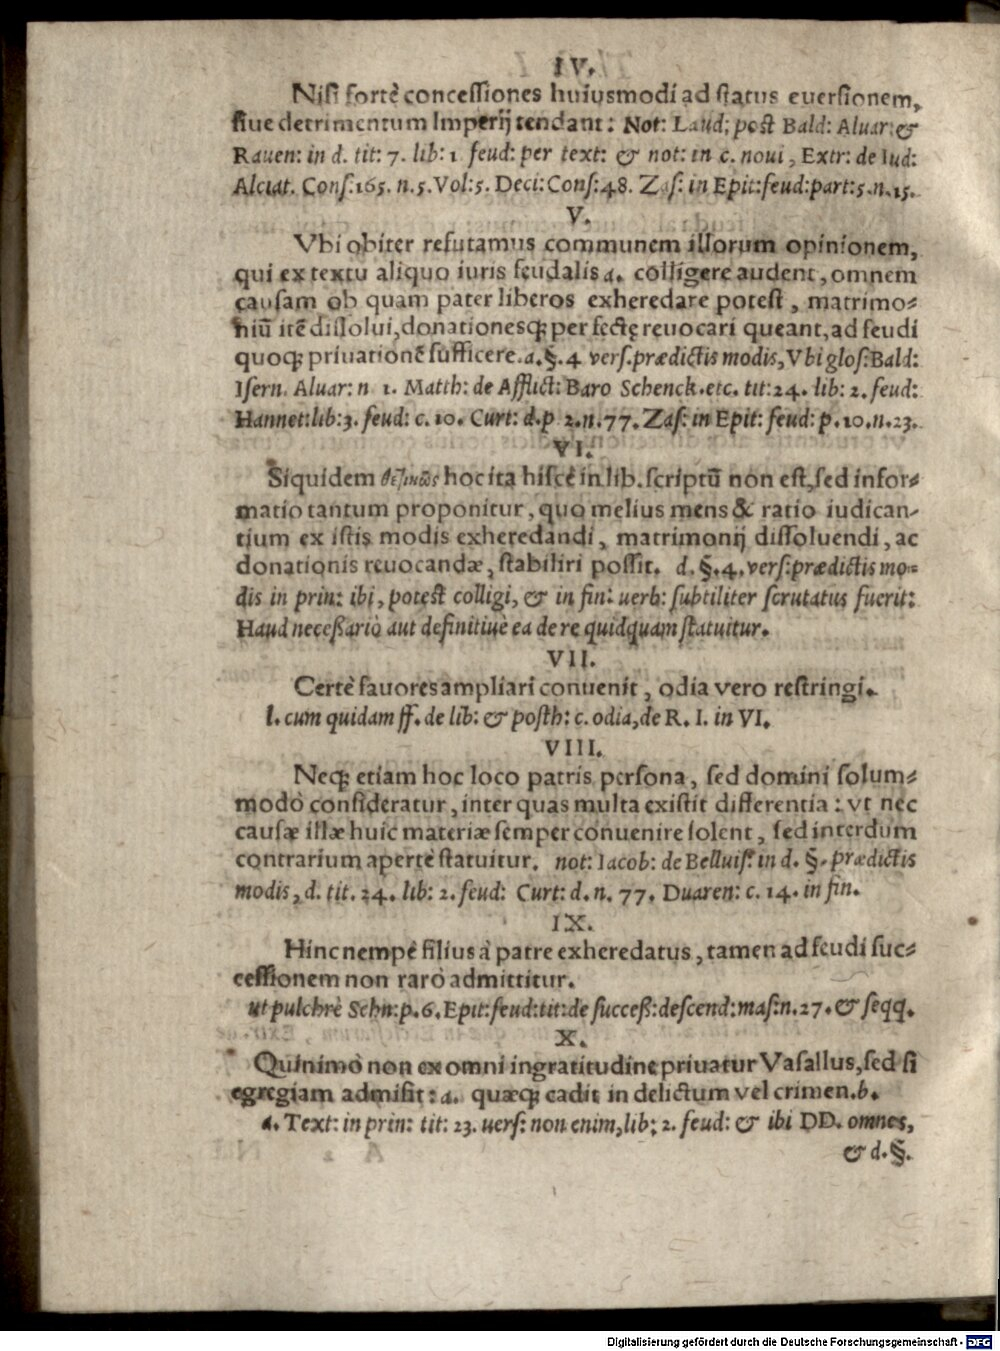 IV.
Nisi fortè concessiones huiusmodi ad status euersionem,
siue detrimentum Imperij tendant: Not: Laud; post Bald: Aluar: &
Rauen: in d. tit: 7. lib: 1 feud: per text: & not: in c. noui, Extr: de Iud:
Alciat. Cons: 165. n. 5. Vol: 5. Deci: Cons: 48. Zas: in Epit: feud: part: 5. n. 15.
V.
Vbi obiter refutamus communem illorum opinionem,
qui ex textu aliquo iuris feudalis a. colligere audent, omnem
causam ob quam pater liberos exheredare potest, matrimo=
niū itē dissolui, donationesq; per fectę reuocari queant, ad feudi
quoq; priuationē sufficere. a. §. 4 vers. prædictis modis, Vbi glos: Bald:
Isern. Aluar: n 1. Matth: de Afflict: Baro Schenck. etc. tit: 24. lib: 2. feud:
Hannet: lib: 3. feud: c. 10. Curt: d. p 2. n. 77. Zas: in Epit: feud: p. 10. n. 23.
VI.
Siquidem hoc ita hisce in lib. scriptū non est, sed infor=
matio tantum proponitur, quo melius mens & ratio iudican-
tium ex istis modis exheredandi, matrimonij dissoluendi, ac
donationis reuocandæ, stabiliri possit. d. §. 4. vers: prædictis mo=
dis in prin: ibi, potest colligi, & in fin: uerb: subtiliter scrutatus fuerit:
Haud necessariò aut definitiuè ea de re quidquam statuitur.
VII.
Certè fauores ampliari conuenit, odia vero restringi.
l. cum quidam ff. de lib: & posth: c. odia, de R. I. in VI.
VIII.
Neq; etiam hoc loco patris persona, sed domini solum=
modò consideratur, inter quas multa existit differentia: vt nec
causæ illæ huic materiæ semper conuenire solent, sed interdum
contrarium apertè statuitur. not: Iacob: de Belluis: in d. §. prædictis
modis, d. tit. 24. lib: 2. feud: Curt: d. n. 77. Duaren: c. 14. in fin.
IX.
Hinc nempè filius à patre exheredatus, tamen ad feudi suc=
cessionem non rarò admittitur.
ut pulchrè Schn: p. 6. Epit: feud: tit: de success: descend: mas: n. 27. & seqq.
X.
Quinimò non ex omni ingratitudine priuatur Vasallus, sed si
egregiam admisit: a. quæq; cadit in delictum vel crimen. b.
a. Text: in prin: tit: 23. uers: non enim, lib: 2. feud: & ibi DD. omnes,
& d. §.
Digitalisierung gefördert durch die Deutsche Forschungsgemeinschaft - DFG